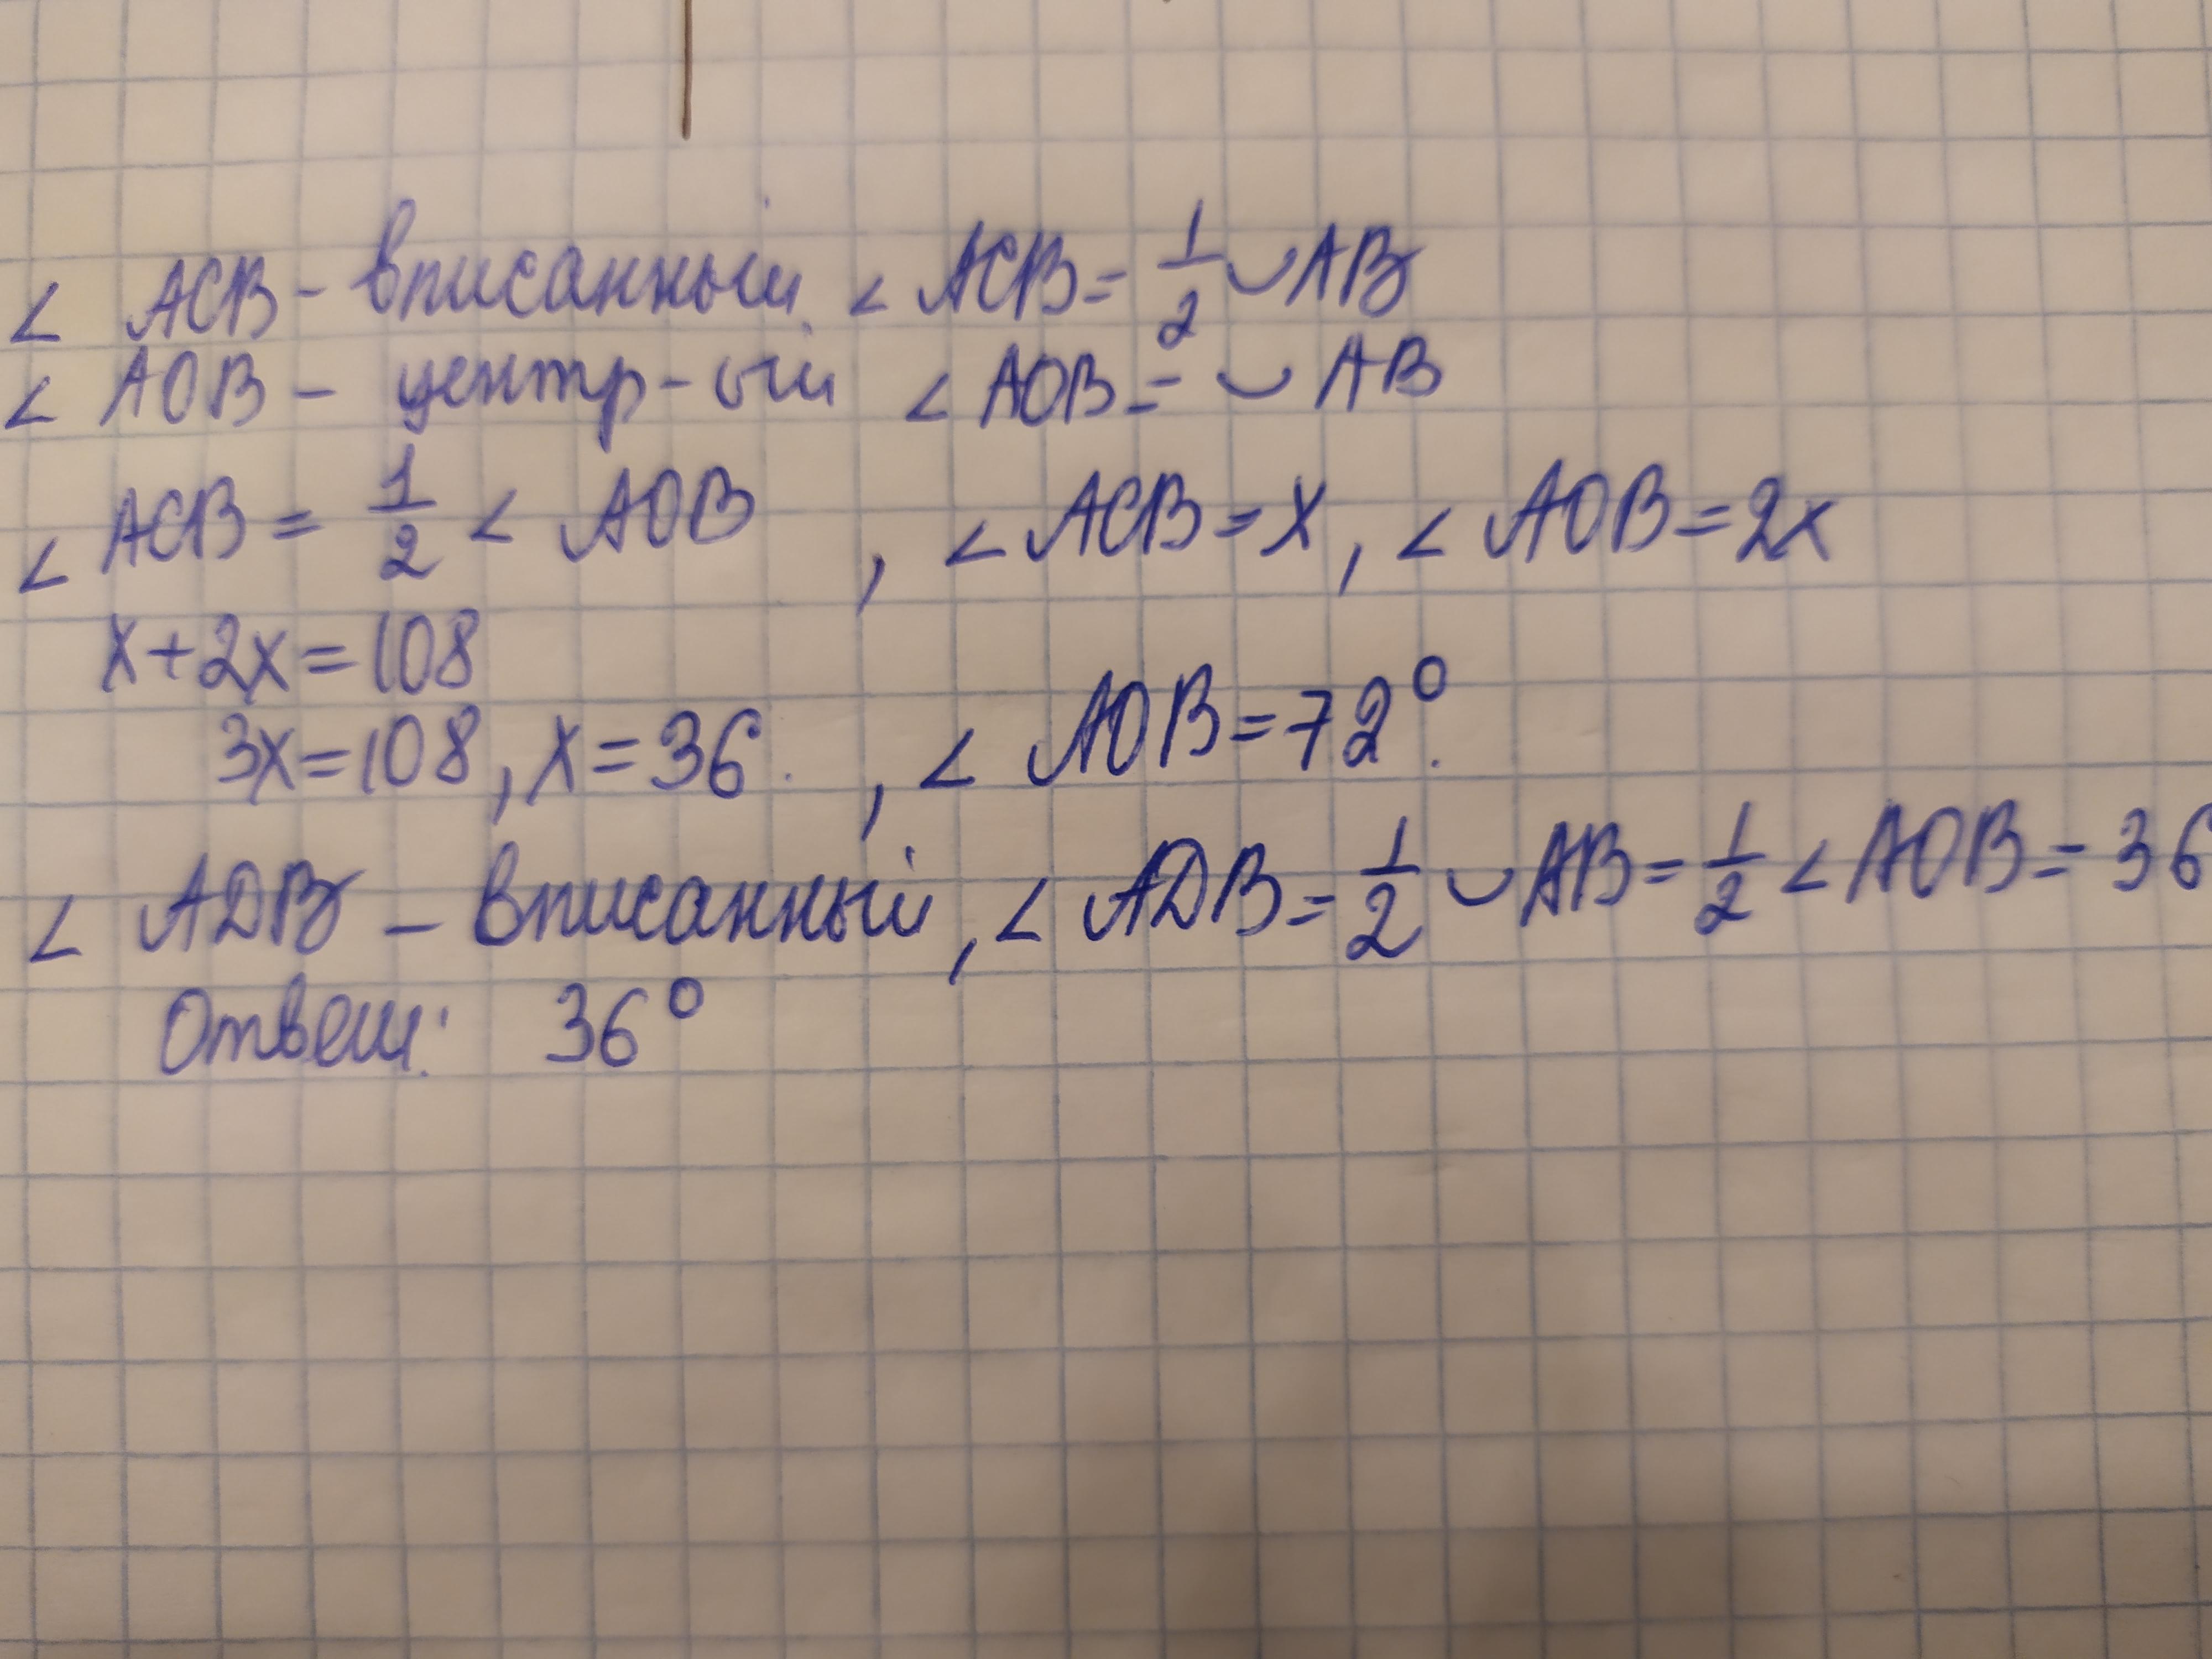 ∠ ACB - вписанный. ∠ ACB = 1/2 ◡ AB
∠ AOB - центр-ый ∠ AOB = ◡ AB
∠ ACB = 1/2 ∠ AOB , ∠ ACB = x, ∠ AOB = 2x
x+2x=108
3x=108, x=36. , ∠ AOB=72°.
∠ ADB - вписанный, ∠ ADB = 1/2 ◡ AB = 1/2 ∠ AOB = 36
Ответ: 36°